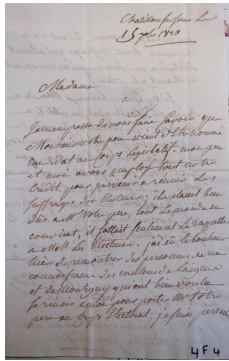 Chatillon sur Seine le
15 7bre 1810
Madame
Je m'empresse de vous faire savoir que
Monsieur votre pere vient d'etre nommé
Candidat au Corps législatif. mon pere
et moi avons employé tout notre
Crédit pour parvenir a réunir les
suffrages des Electeurs; ils etaient bien
Dûs a M. votre pere, tout le monde en
convenait, il fallait seulement le rappeller
a MM. les Electeurs. j'ai eu le bonheur
hier de rencontrer des personnes de ma
connaissance des cantons de Laignes
et de Montigny qui ont bien voulu
se réunir à nous pour porter M. votre
pere au Corps Electoral, je suis persuadé
4F4